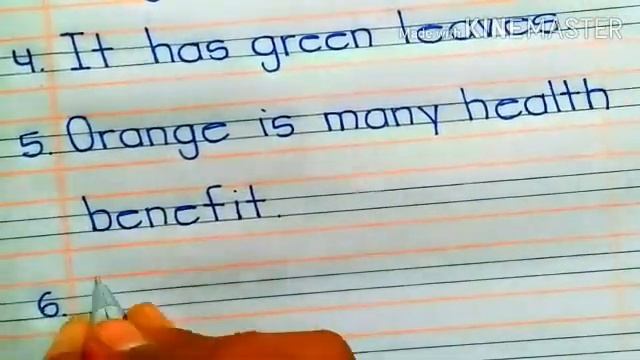 4. It has green leaves
Made with KINEMASTER
5. Orange is many health
benefit.
6.